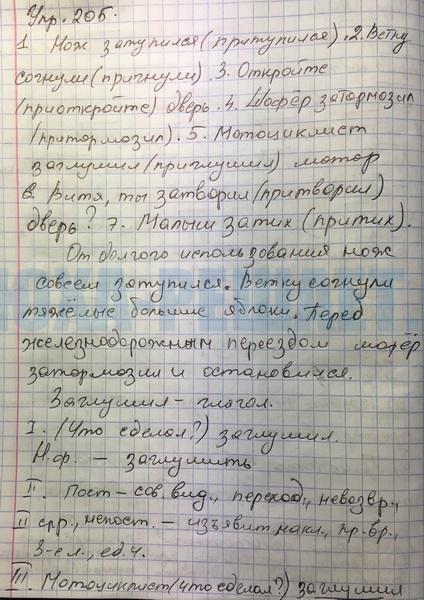 Упр. 205.
1. Нож затупился (притупился). 2. Ветку
согнули (пригнули). 3. Откройте
(приоткройте) дверь. 4. Шофёр затормозил
(притормозил). 5. Мотоциклист
заглушил (приглушил) мотор
6. Витя, ты затворил (притворил)
дверь? 7. Малыш затих (притих).
От долгого использования нож
совсем затупился. Ветку согнули
тяжёлые большие яблоки. Перед
железнодорожным переездом шофёр
затормозил и остановился.
Заглушил - глагол.
I. (Что сделал?) заглушил.
Н.ф. - заглушить
II. Пост - сов. вид., переход., невозвр.,
II спр., непост. - изъявит. накл., пр. вр.,
3-е л., ед. ч.
III. Мотоциклист (что сделал?) заглушил